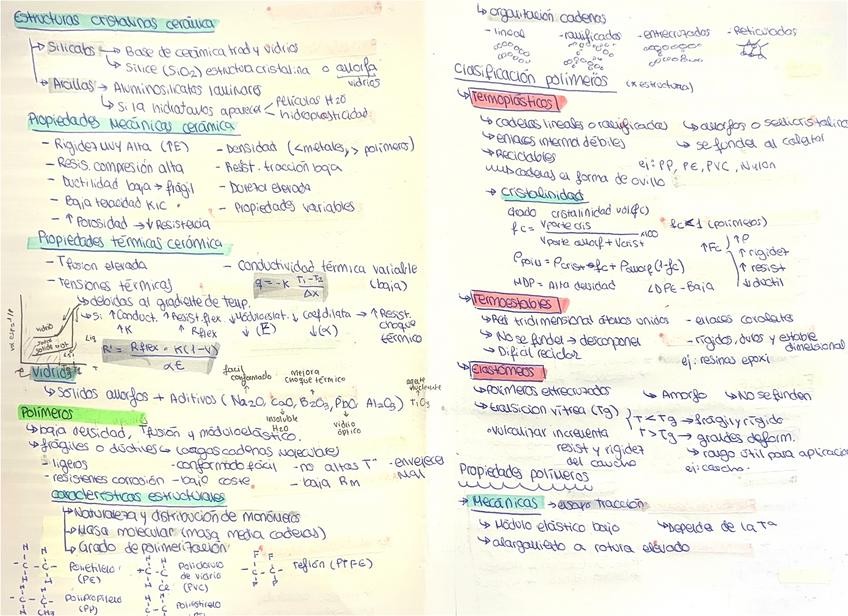 Estructuras cristalinas cerámica
↳ Silicatos → Base de cerámica trad y vidrios
↳ Sílice (SiO2) estructura cristalina o amorfa
vidrios
↳ Arcillas → Aluminosilicatos laminares
↳ Si la hidratamos aparecer < Películas H2O
hidroplasticidad
Propiedades Mecánicas cerámica
- Rigidez muy Alta (↑E)
- Resis. compresión alta
- Ductilidad baja → frágil
- Baja tenacidad KIC
- ↑ Porosidad → ↓ Resistencia
- Densidad (< metales, > polímeros)
- Resist. tracción baja
- Dureza elevada
- Propiedades variables
Propiedades térmicas cerámica
- Tfusión elevada
- Tensiones térmicas
- conductividad térmica variable
(baja)
q = -K T1-T2 / Δx
↳ debidas al gradiente de temp.
↳ Si ↑ Conduct. ↑ Resist. flex ↓ Módulo elast. ↓ coef dilata → ↑ Resist.
↑K ↑ Rflex ↓(E) ↓(α) choque
térmico
R' = Rflex · K(1-ν) / αE
vidrio
Liq
Vidrios
fácil conformado
mejora choque térmico
↳ Sólidos amorfos + Aditivos (Na2O, CaO, B2O3, PbO, Al2O3) TiO2
insoluble H2O
vidrio óptico
Polímeros
↳ baja densidad, Tfusión y módulo elástico.
↳ frágiles o dúctiles → largas cadenas moleculares
- ligeros - conformado fácil - no altas Tª - envejecen
- resistentes corrosión - bajo coste - baja Rm
características estructurales
↳ Naturaleza y distribución de monómeros
↳ Masa molecular (masa media cadenas)
↳ Grado de polimerización
Polietileno (PE)
Policloruro de vinilo (PVC)
Teflón (PTFE)
Polipropileno (PP)
Poliestireno
↳ organización cadenas
- lineal - ramificadas - entrecruzados - Reticulados
Clasificación polímeros (x estructura)
↳ Termoplásticos
↳ cadenas lineales o ramificadas ↳ amorfos o semicristalino
↳ enlaces interna débiles ↳ se funden al calentar
↳ Reciclables ej: PP, PE, PVC, Nylon
cadenas en forma de ovillo
→ cristalinidad
Grado cristalinidad vol (fc)
fc = Vparte cris / Vparte amorf + Vcrist x100 fc < 1 (polímeros)
↑Fc ↑ρ
↑ rigidez
↑ resist
↓ ductil
ρpolím = ρcrist · fc + ρamorf (1-fc)
HDP = Alta densidad LDPE - Baja
↳ Termoestables
↳ Red tridimensional átomos unidos - enlaces covalentes
↳ No se funden → descomponen - rígidos, duros y estable
dimensional
↳ Difícil reciclar ej: resinas epoxi
↳ Elastómeros
↳ Polímeros entrecruzados ↳ Amorfo ↳ No se funden
↳ transición vítrea (Tg) T < Tg → frágil y rígido
T > Tg → grandes deform.
vulcanizar incrementa
resist y rigidez
del caucho
↳ rango útil para aplicación
ej: caucho.
Propiedades polímeros
→ Mecánicas → ensayo tracción
↳ Módulo elástico bajo ↳ Depende de la Tª
↳ alargamiento a rotura elevado